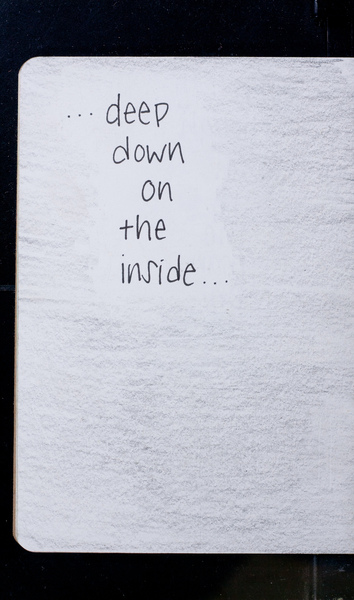 ... deep
down
on
the
inside...